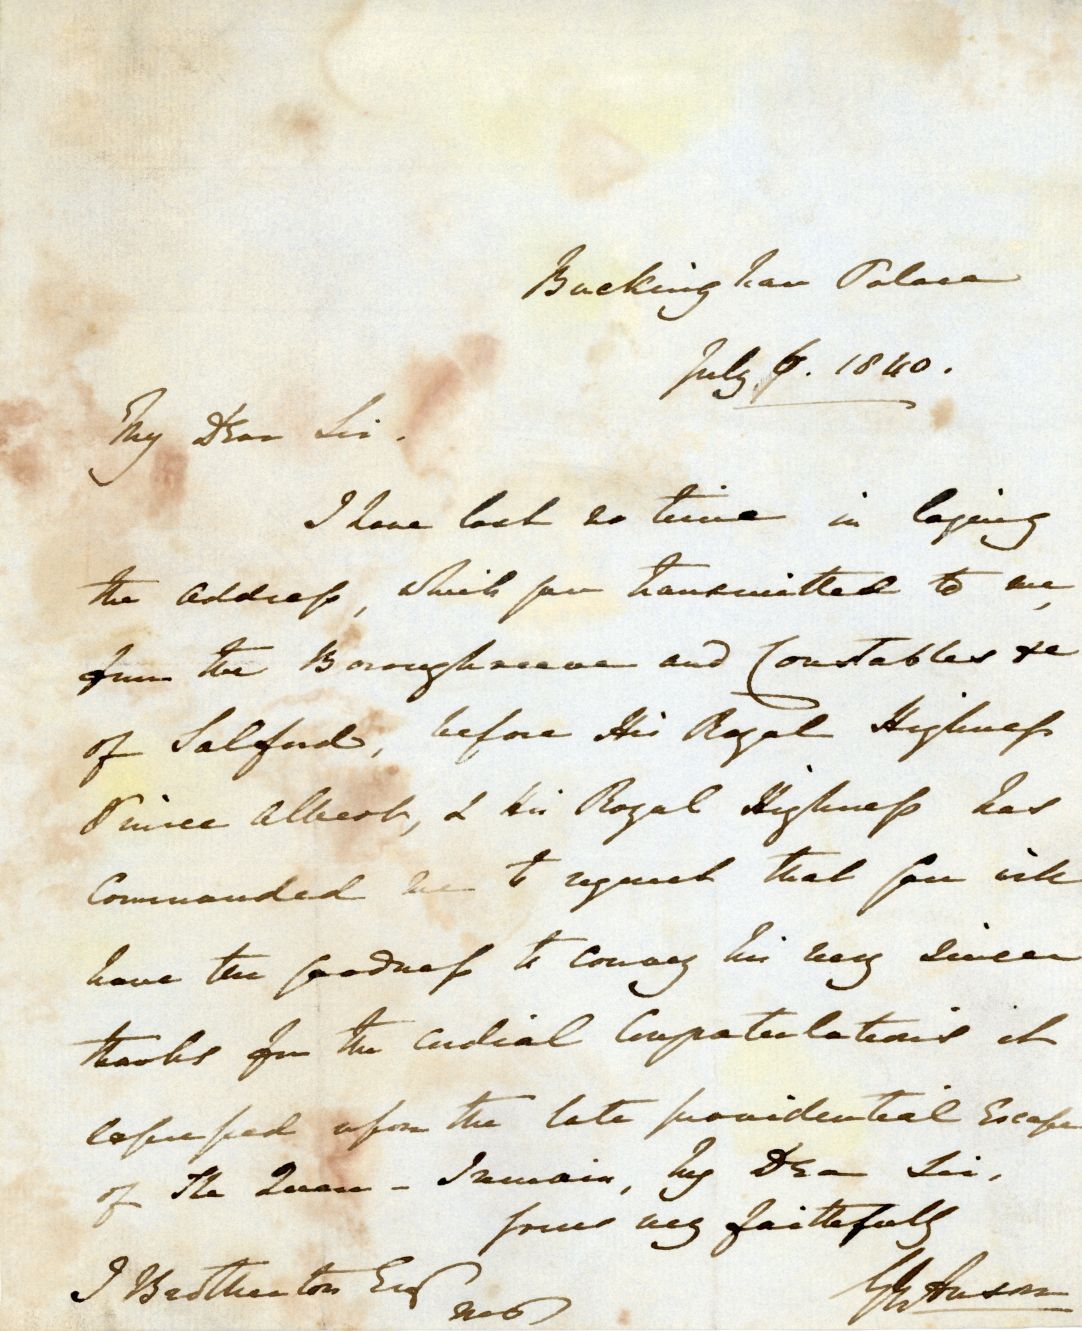 Buckingham Palace
July 6. 1840.
My Dear Sir.
I have lost no time in laying
the Address, which you transmitted to me,
from the Boroughreeve and Constables &c
of Salford, before His Royal Highness
Prince Albert, & His Royal Highness has
commanded me to request that you will
have the goodness to convey his very sincere
thanks for the cordial Congratulations it
expressed upon the late providential Escape
of The Queen - I remain, My Dear Sir,
yours very faithfully
J Brotherton Esq G E Anson
MP